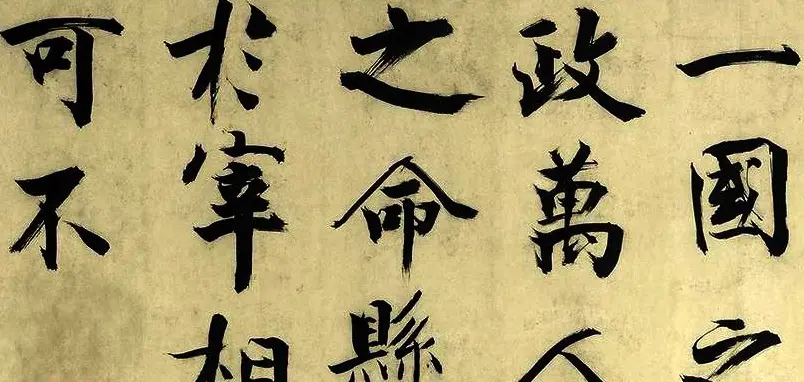 一國之
政萬人
之命縣
於宰相
可不